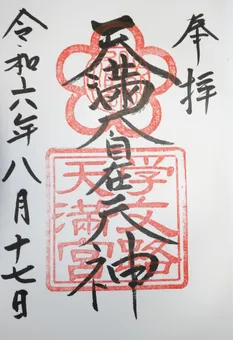 奉拝
天満大自在天神
学文路天満宮
令和六年八月十七日